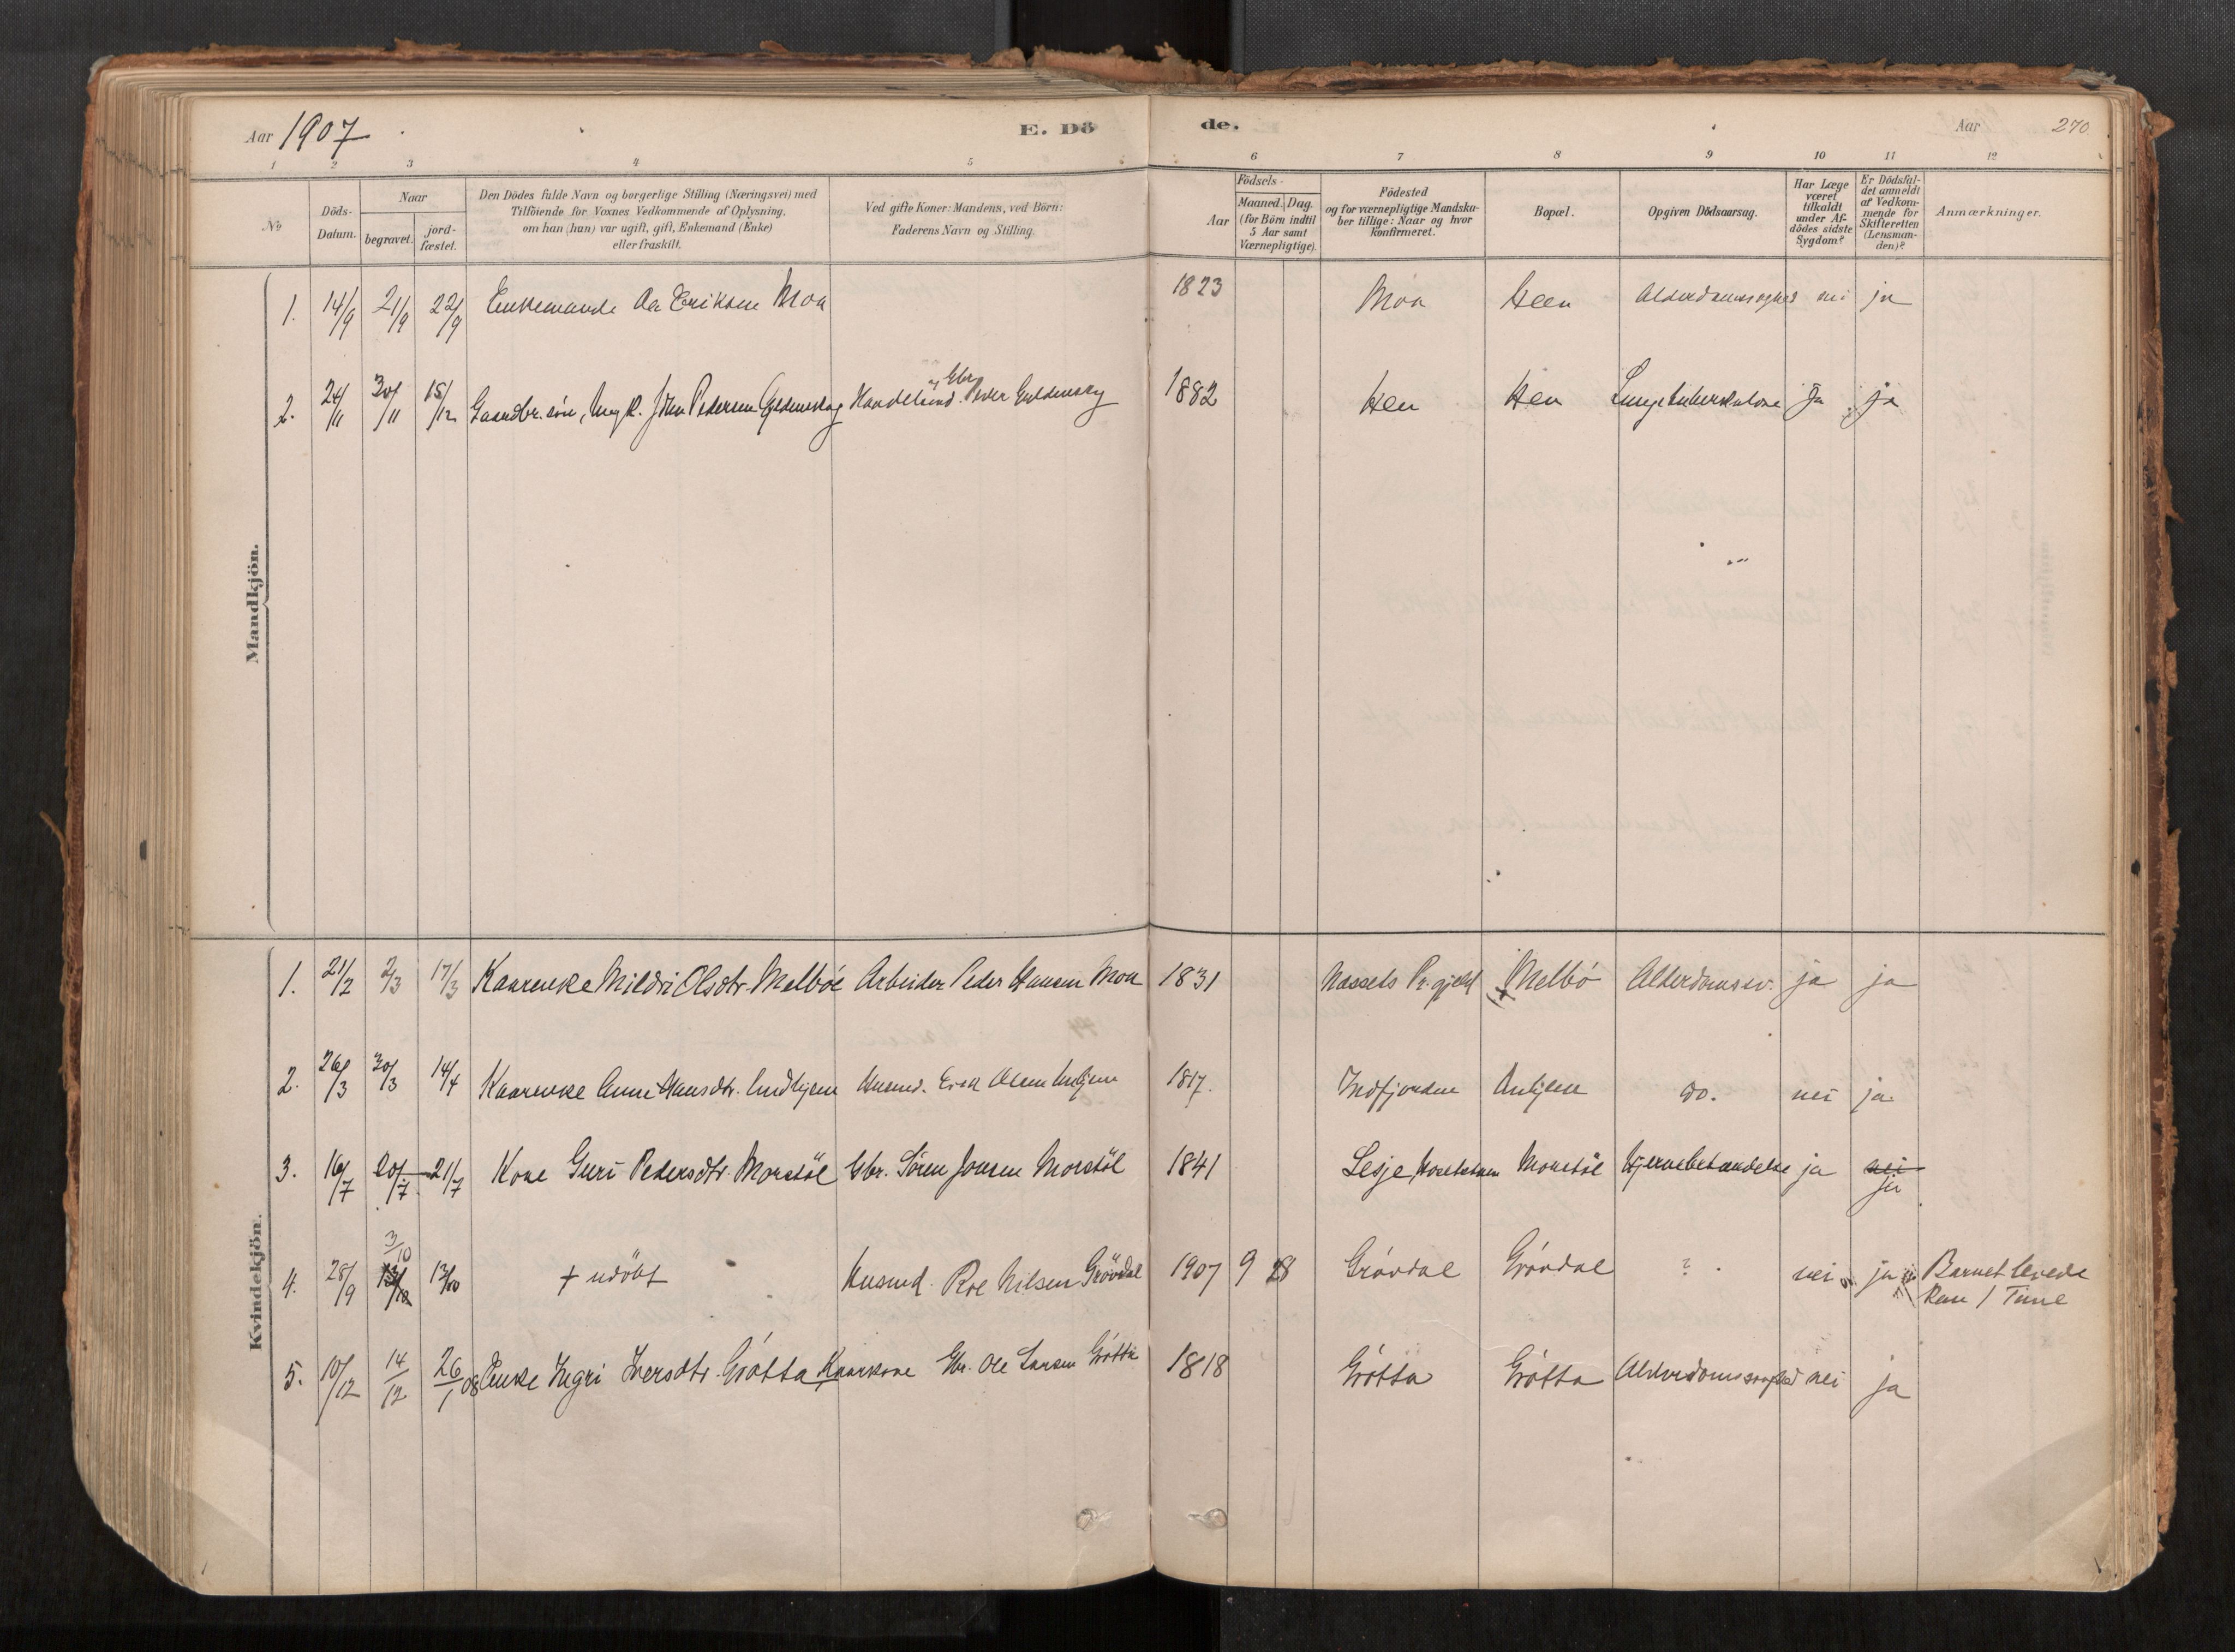 Aar 1907
E. Döde.
Aar 270
1 2 3 4 5 6 7 8 9 10 11 12
No
Döds-Datum.
Naar
begravet.
jord-fæstet.
Den Dödes fulde Navn og borgerlige Stilling (Næringsvei) med
Tilföiende for Voxnes Vedkommende af Oplysning,
om han (hun) var ugift, gift, Enkemand (Enke)
eller fraskilt.
Ved gifte Koner: Mandens, ved Börn:
Faderens Navn og Stilling.
Födsels-
Aar
Maaned. Dag.
(for Börn indtil
5 Aar samt
Værnepligtige).
Födested
og for værnepligtige Mandska-
ber tillige: Naar og hvor
konfirmeret.
Bopæl.
Opgiven Dödsaarsag.
Har Læge
været
tilkaldt
under Af-
dödes sidste
Sygdom?
Er Dödsfal-
det anmeldt
af Vedkom-
mende for
Skifteretten
(Lensman-
den)?
Anmærkninger.
Mandkjön.
1. 14/9 21/9 22/9 Enkemand Ole Eriksen Moa 1823 Moa Heen nei ja
2. 24/11 30/11 15/12 Gaardbr. søn, Ungk. John Pedersen Gyldenskog og Gbr. Peder 1882 Hen Hen Lungetuberkulose ja ja
Kvindekjön.
1. 21/2 2/3 17/3 Kaarenke Mildri Olsdtr. Melböe Arbeider Peder Hansen Moa 1831 Nessets Pr.gjeld Melbö Alderdomssv. ja ja
2. 26/3 30/3 14/4 Kaarenke Anne Hansdtr. Husmd. Erik Olsen 1817. Indfjorden do. nei ja
3. 16/7 20/7 21/7 Kone Guri Pedersdtr. Morstöl Gbr. Sören Jonsen Morstöl 1841 Lesje Morstöl Hjernebetændelse ja nei ja
4. 28/9 3/10 13/10 13/10 + udöbt Husmd. Roe Nilsen Grövdal 1907 9 28 Grövdal Grövdal ? nei ja Barnet levede
kun 1 Time
5. 10/12 14/12 26/1 08 Enke Ingri Iversdtr. Grötta Kaarkone Gbr. Ole Larsen Grötta 1818 Grötta Grötta nei ja